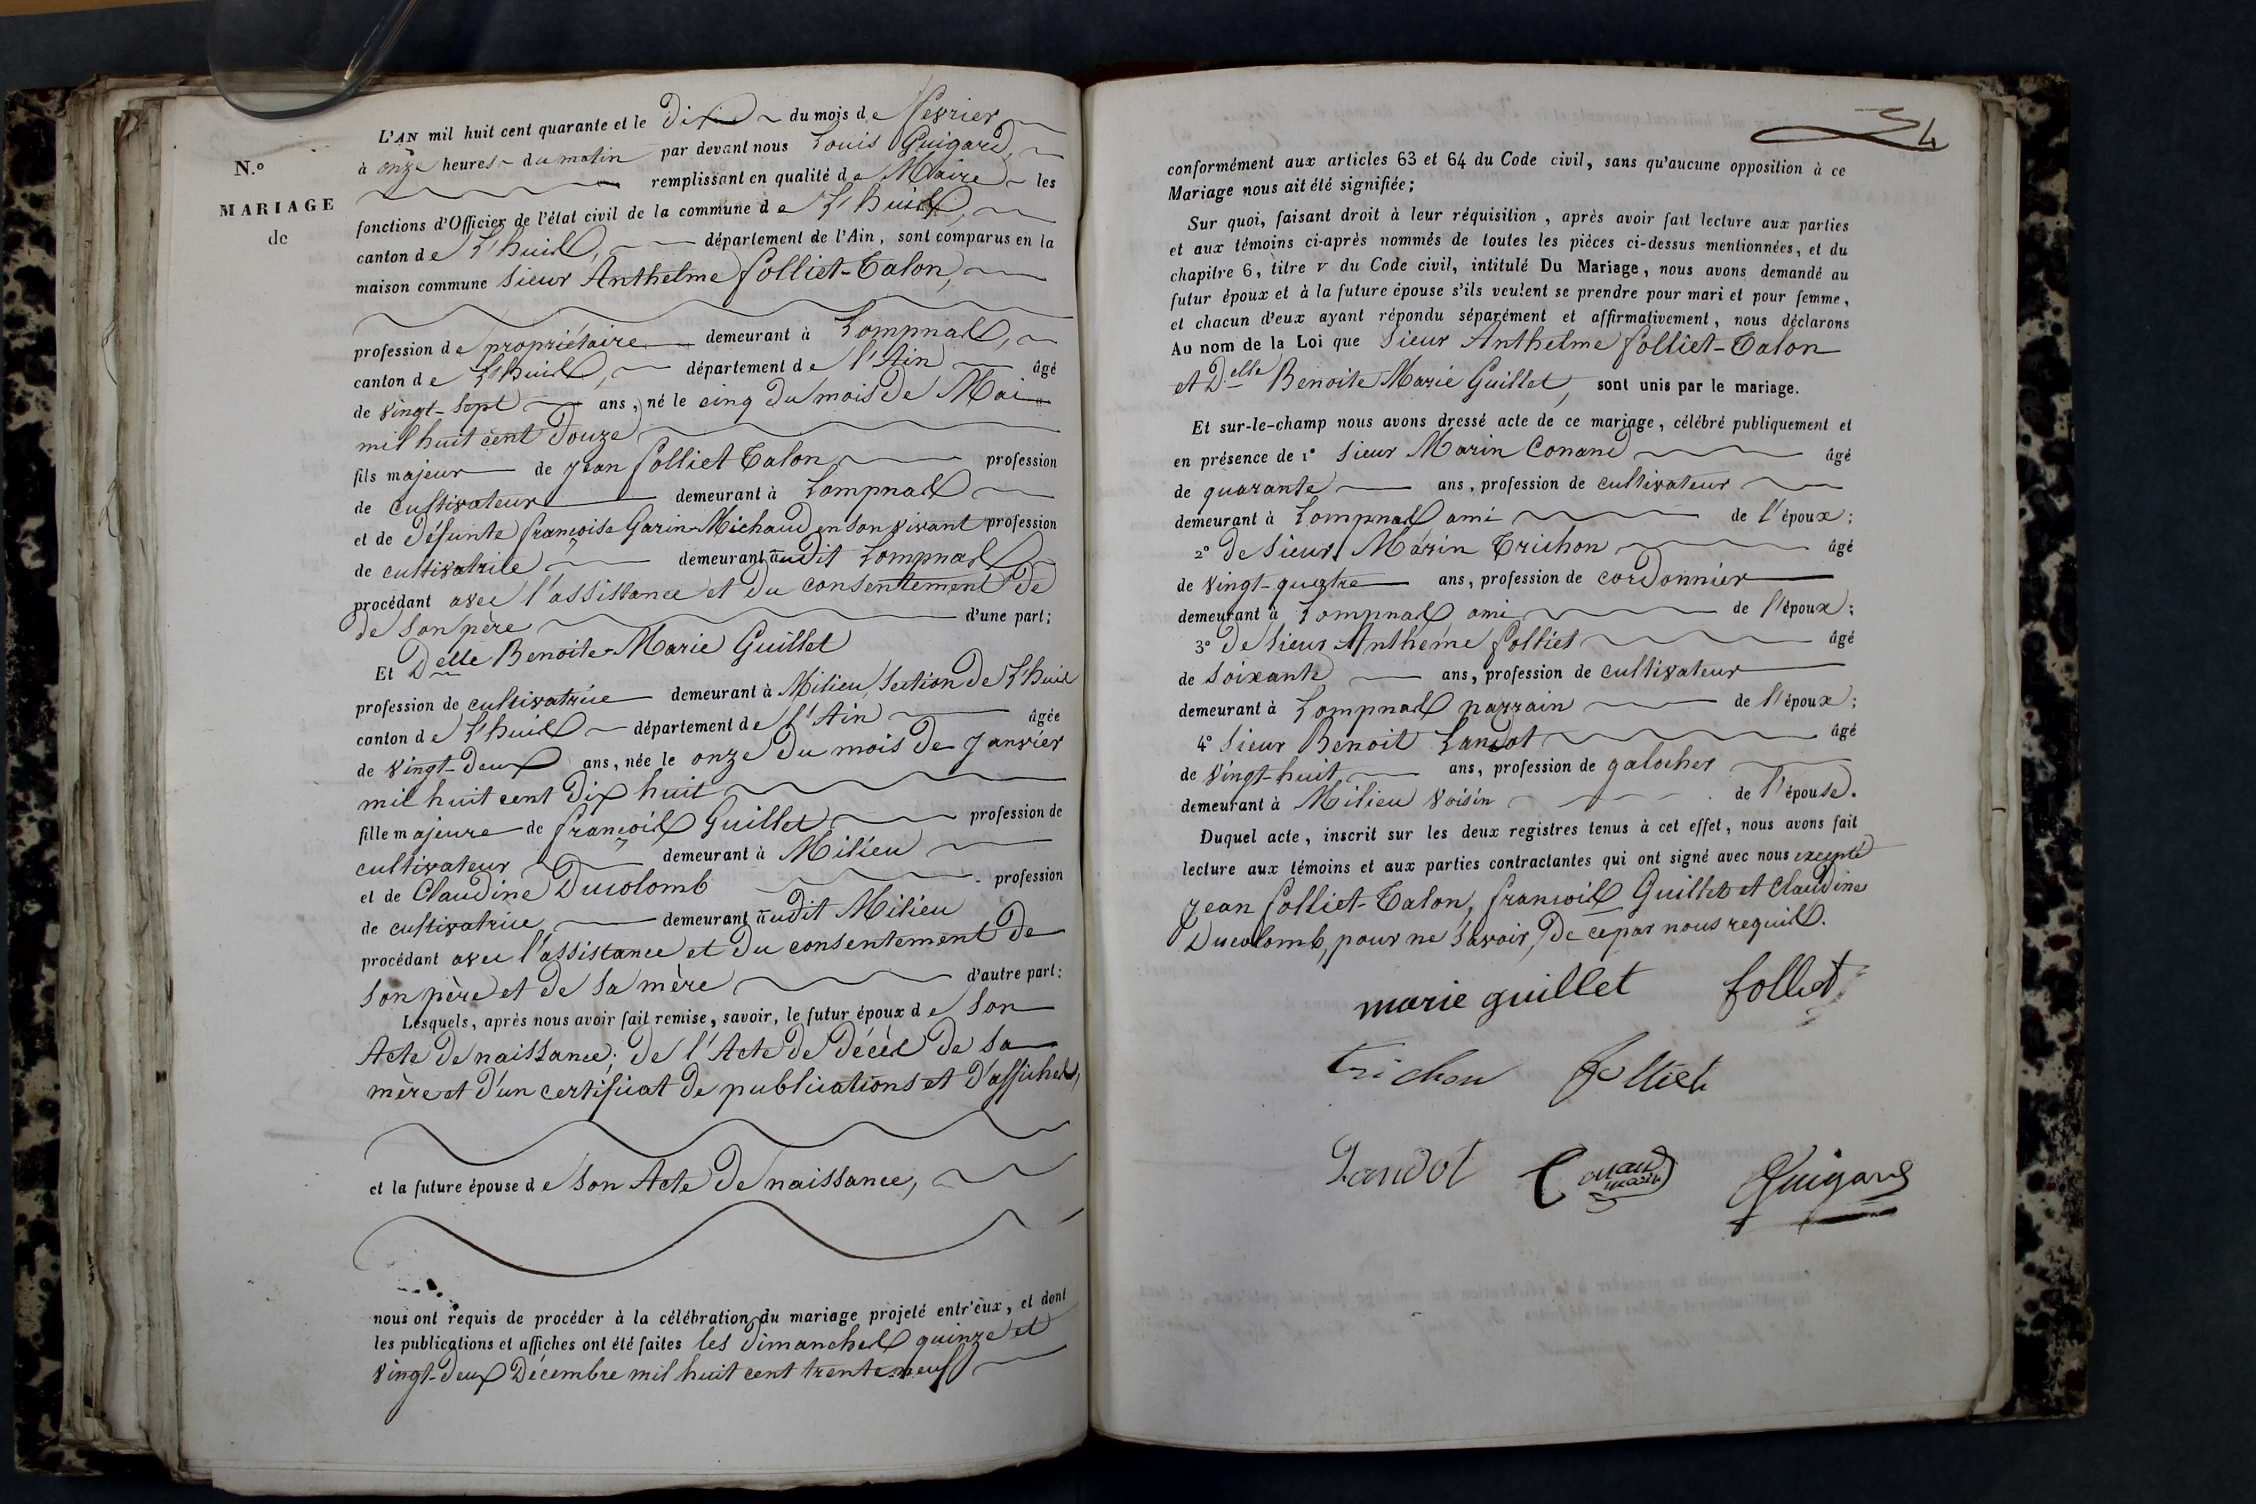 N.º
MARIAGE
de
L'AN mil huit cent quarante et le Dix du mois de Fevrier
à onze heures du matin par devant nous Louis Guigard,
remplissant en qualité de Maire les
fonctions d'Officier de l'état civil de la commune de L'huis,
canton de L'huis, département de l'Ain, sont comparus en la
maison commune sieur Anthelme Folliet-Talon,
profession de propriétaire demeurant à Lompnas,
canton de L'huis, département de l'Ain âgé
de vingt-sept ans, né le cinq du mois de Mai
mil huit cent douze
fils majeur de Jean Folliet Talon profession
de cultivateur demeurant à Lompnas
et de défunte françoise Garin-Michaud en son vivant profession
de cultivatrice demeurant audit Lompnas
procédant avec l'assistance et du consentement de
de son père d'une part;
Et Delle Benoite-Marie Guillet
profession de cultivatrice demeurant à Milieu, section de L'huis
canton de L'huis département de l'Ain âgée
de vingt-deux ans, née le onze du mois de Janvier
mil huit cent dix huit
fille majeure de françois Guillet profession de
cultivateur demeurant à Milieu
et de Claudine Ducolomb profession
de cultivatrice demeurant audit Milieu
procédant avec l'assistance et du consentement de
son père et de sa mère d'autre part:
Lesquels, après nous avoir fait remise, savoir, le futur époux de son
Acte de naissance; de l'Acte de décès de sa
mère et d'un certificat de publications et d'affiches,
et la future épouse de son Acte de naissance,
nous ont requis de procéder à la célébration du mariage projeté entr'eux, et dont
les publications et affiches ont été faites les dimanches quinze et
vingt-deux Décembre mil huit cent trente neuf
34
conformément aux articles 63 et 64 du Code civil, sans qu'aucune opposition à ce
Mariage nous ait été signifiée;
Sur quoi, faisant droit à leur réquisition, après avoir fait lecture aux parties
et aux témoins ci-après nommés de toutes les pièces ci-dessus mentionnées, et du
chapitre 6, titre v du Code civil, intitulé Du Mariage, nous avons demandé au
futur époux et à la future épouse s'ils veulent se prendre pour mari et pour femme,
et chacun d'eux ayant répondu séparément et affirmativement, nous déclarons
Au nom de la Loi que sieur Anthelme Folliet-Talon
et Delle Benoite Marie Guillet, sont unis par le mariage.
Et sur-le-champ nous avons dressé acte de ce mariage, célébré publiquement et
en présence de 1º sieur Marin Conand âgé
de quarante ans, profession de cultivateur
demeurant à Lompnas ami de l'époux;
2º de sieur Marin Trichon âgé
de vingt-quatre ans, profession de cordonnier
demeurant à Lompnas ami de l'époux;
3º de sieur Antheme Folliet âgé
de soixante ans, profession de cultivateur
demeurant à Lompnas parrain de l'époux;
4º sieur Benoit Landot âgé
de vingt-huit ans, profession de galocher
demeurant à Milieu voisin de l'épouse.
Duquel acte, inscrit sur les deux registres tenus à cet effet, nous avons fait
lecture aux témoins et aux parties contractantes qui ont signé avec nous excepté
Jean Folliet-Talon, françois Guillet et Claudine
Ducolomb, pour ne savoir, de ce par nous requis.
marie guillet folliet
trichon folliet
Landot Conand marin Guigard